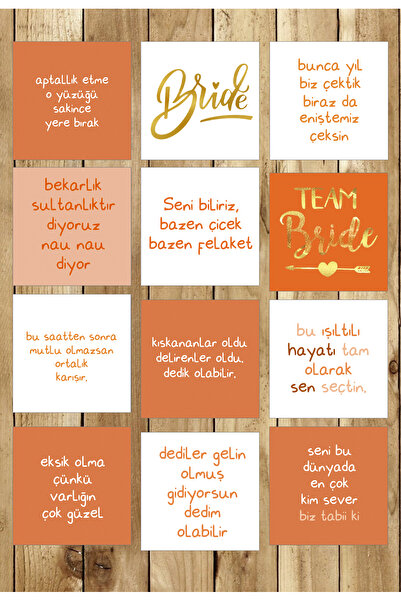 aptallık etme
o yüzüğü
sakince
yere bırak
Bride
bunca yıl
biz çektik
biraz da
eniştemiz
çeksin
bekarlık
sultanlıktır
diyoruz
nau nau
diyor
Seni biliriz,
bazen çiçek
bazen felaket
TEAM
Bride
bu saatten sonra
mutlu olmazsan
ortalık
karışır.
kıskananlar oldu
delirenler oldu.
dedik olabilir.
bu ışıltılı
hayatı tam
olarak
sen seçtin.
eksik olma
çünkü
varlığın
çok güzel
dediler gelin
olmuş
gidiyorsun
dedim
olabilir
seni bu
dünyada
en çok
kim sever
biz tabii ki